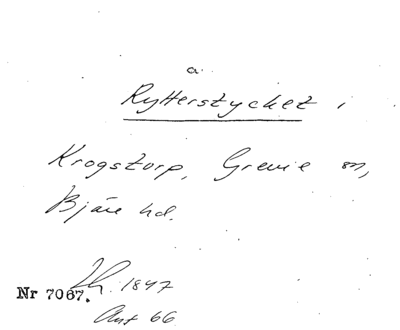 a.
Rytterstycket i
Krogstorp, Grevie sn,
Bjäre hd.
1847
Nr 7067.
Ant 66